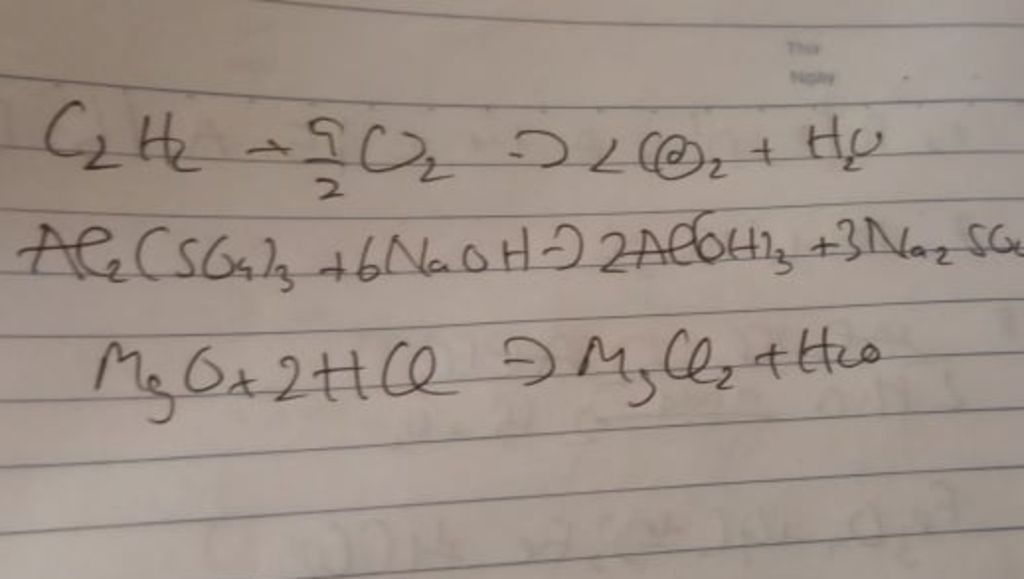 Thứ
Ngày
C₂H₂ + 5/2 O₂ => 2CO₂ + H₂O
Al₂(SO₄)₃ + 6NaOH => 2Al(OH)₃ + 3Na₂SO₄
MgO + 2HCl => MgCl₂ + H₂O